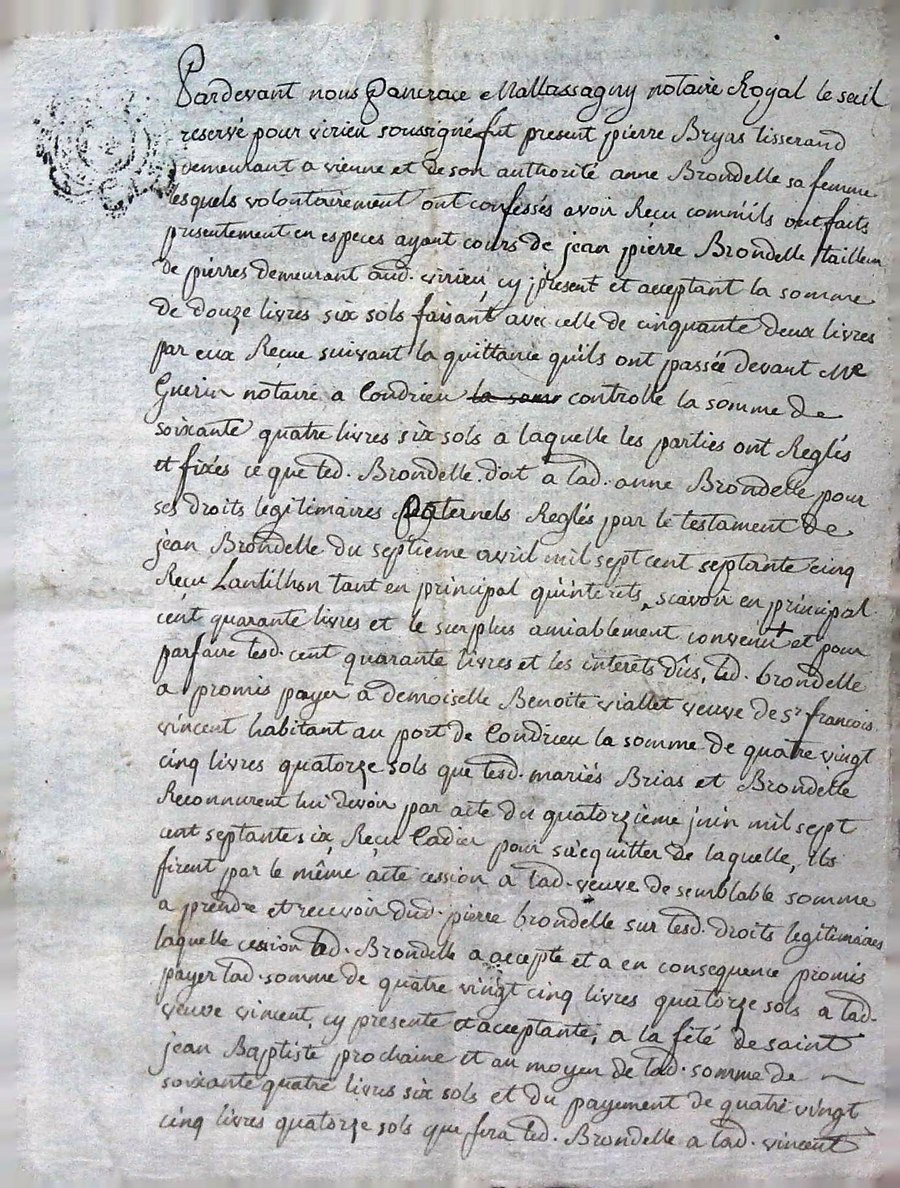 Pardevant nous Pancrace Mallassagny notaire Royal le seul
reservé pour virieu soussigné fut present pierre Bryas tisserand
demeurant a vienne et de son authorité anne Brondelle sa femme
lesquels volontairement ont confessés avoir Reçu comm'ils ont faits
presentement en especes ayant cours de jean pierre Brondelle tailleur
de pierres demeurant aud. virieu, cy present et acceptant la somme
de douze livres six sols faisant avec celle de cinquante deux livres
par eux Reçue suivant la quittance qu'ils ont passée devant Me
Guerin notaire a Condrieu la som controllé la somme de
soixante quatre livres six sols a laquelle les parties ont Reglés
et fixés ce que led. Brondelle doit a lad. anne Brondelle pour
ses droits legitimaires paternels Reglés par le testament de
jean Brondelle du septieme avril mil sept cent septante cinq
Reçu Lantilhon tant en principal qu'interets, scavoir en principal
cent quarante livres et le surplus amiablement convenu + et pour
parfaire lesd. cent quarante livres et les interets d'us, led. brondelle
a promis payer a demoiselle Benoite viallet veuve de Sr francois
vincent habitant au port de Condrieu la somme de quatre vingt
cinq livres quatorze sols que lesd. mariés Brias et Brondelle
Reconnurent lui devoir par acte du quatorzieme juin mil sept
cent septante six, Reçu Cadier pour s'acquitter de laquelle, ils
firent par le même acte cession a lad. veuve de semblable somme
a prendre et recevoir dud. pierre brondelle sur lesd. droits legitimaires
laquelle cession led. Brondelle a accepté et a en consequence promis
payer lad. somme de quatre vingt cinq livres quatorze sols a lad.
veuve vincent, cy presente et acceptante, a la fété de saint
jean Baptiste prochaine et au moyen de lad. somme de
soixante quatre livres six sols et du payement de quatre vingt
cinq livres quatorze sols que fera led. Brondelle a lad. vincent